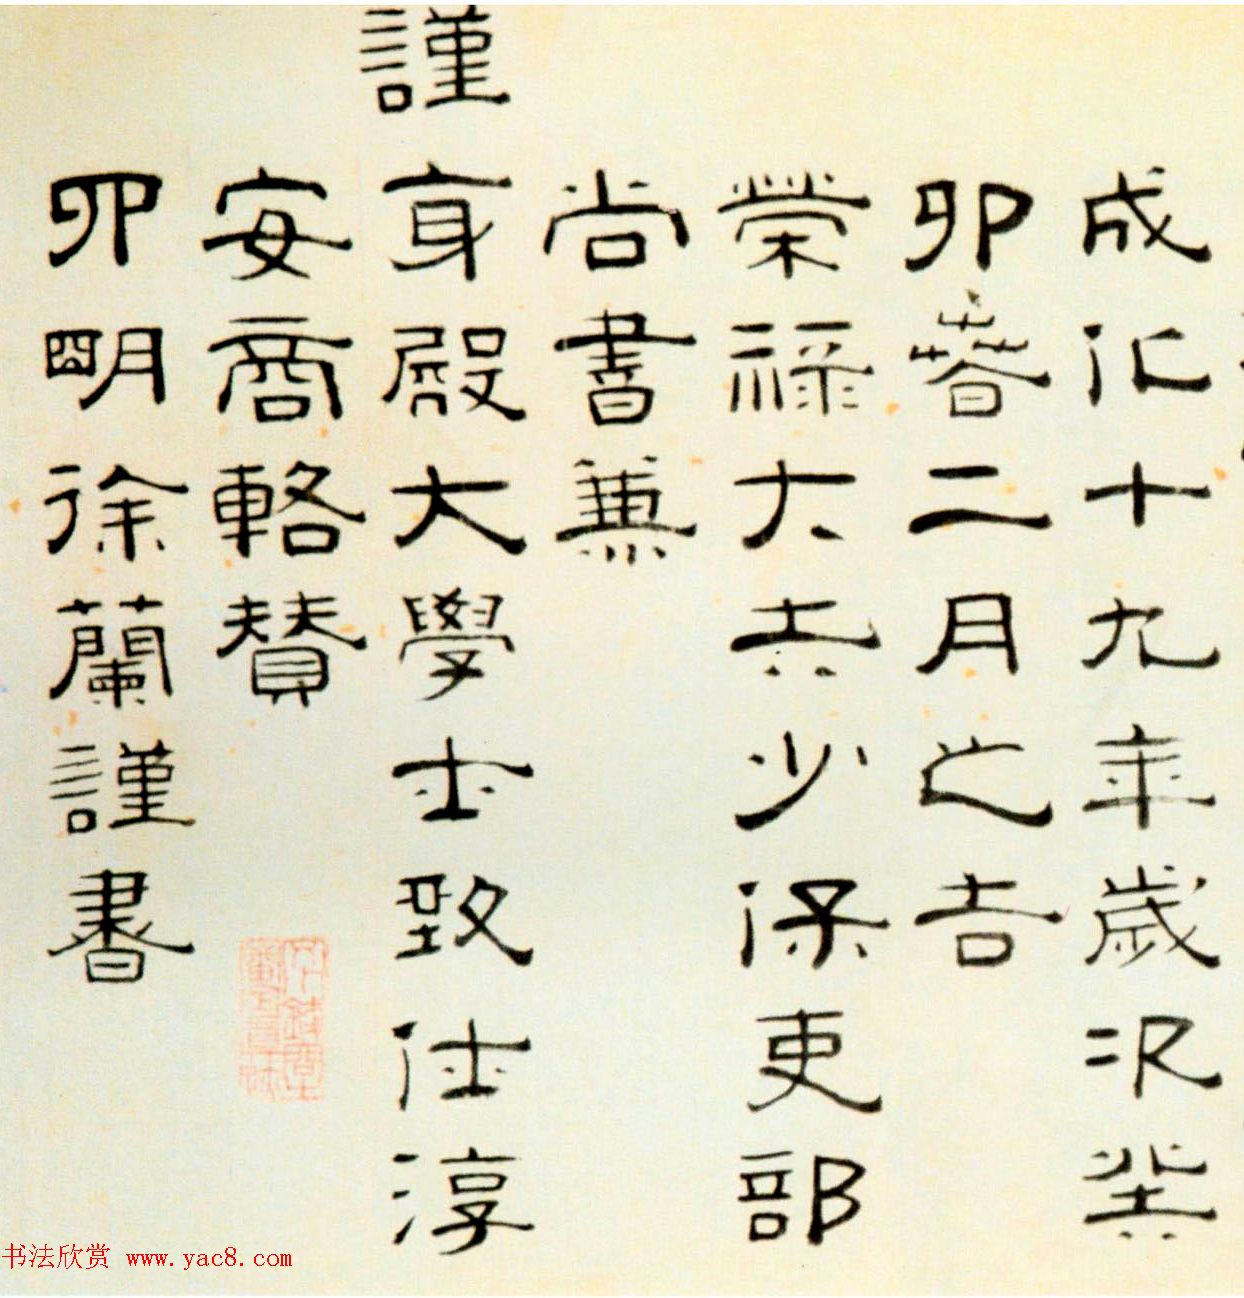 成化十九年歲次癸
卯春二月之吉
榮祿大夫少保吏部
尚書兼
謹身殿大學士致仕淳
安商輅贊
四明徐蘭謹書
书法欣赏 www.yac8.com